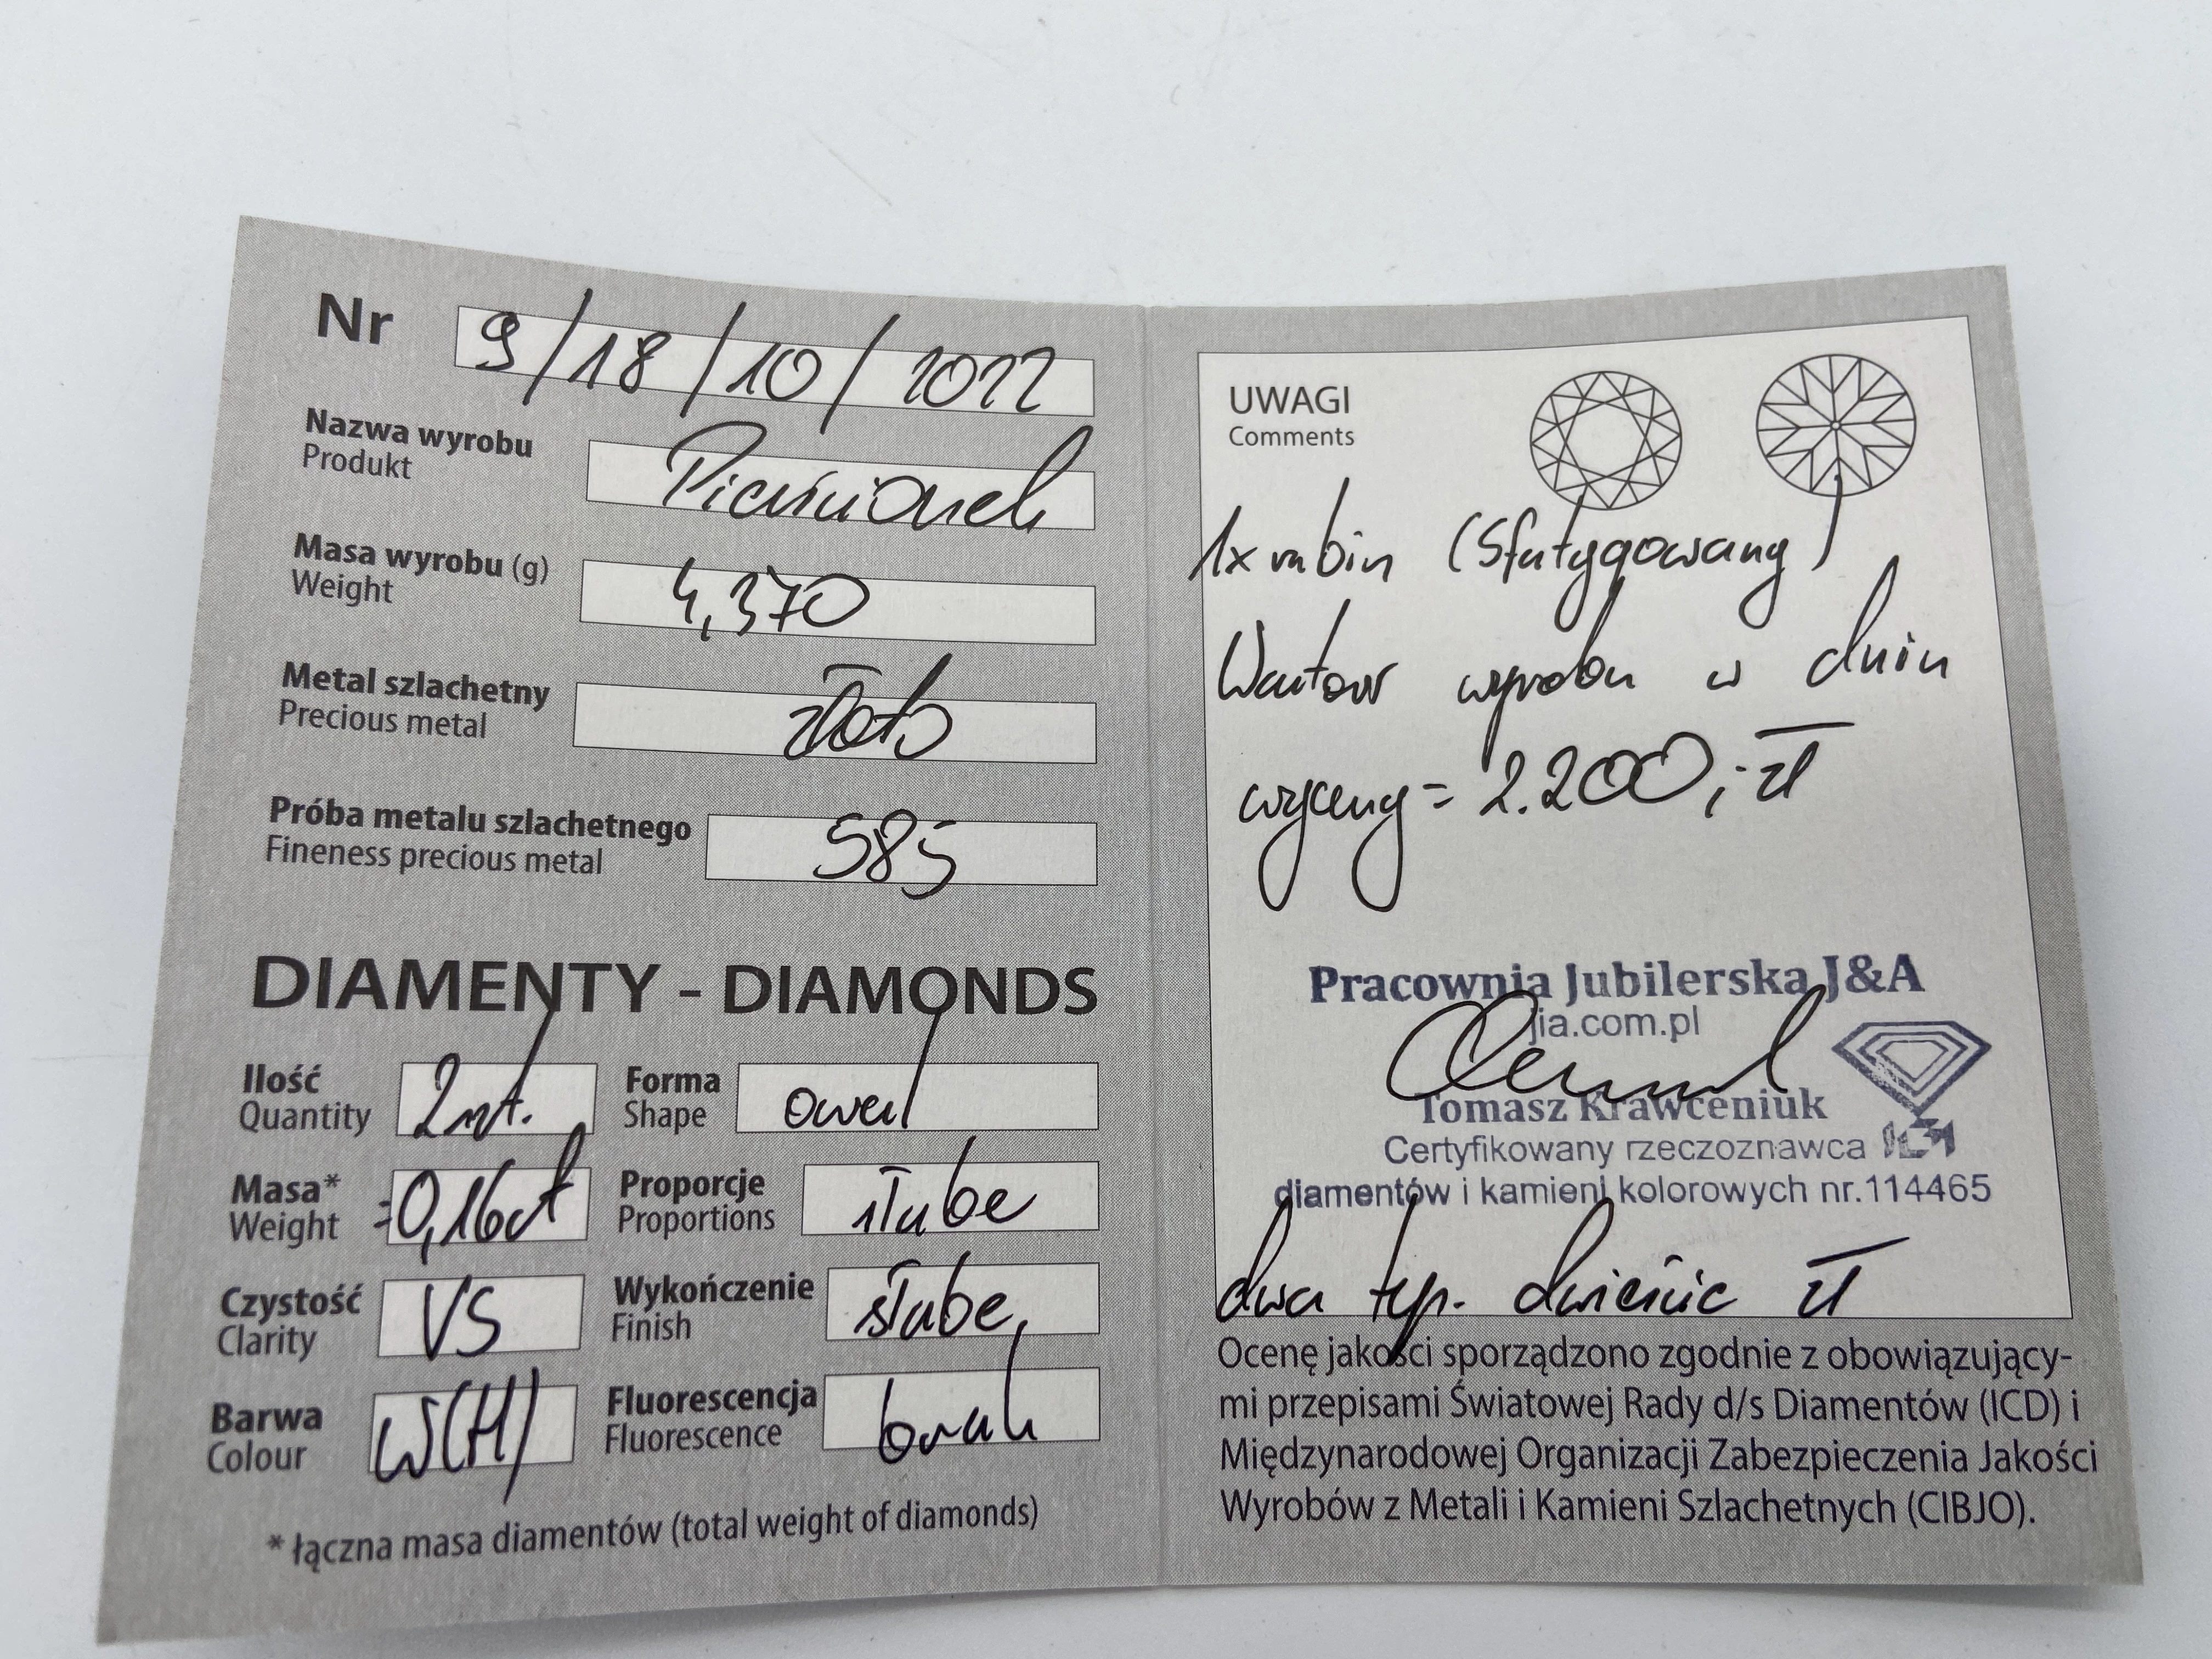 Nr 9/18/10/2022
Nazwa wyrobu Pierścionek
Produkt
Masa wyrobu (g) 4,370
Weight
Metal szlachetny złoto
Precious metal
Próba metalu szlachetnego 585
Fineness precious metal
DIAMENTY - DIAMONDS
Ilość 2szt. Forma owal
Quantity Shape
Masa* =0,16ct Proporcje słabe
Weight Proportions
Czystość VS Wykończenie słabe
Clarity Finish
Barwa W(H) Fluorescencja brak
Colour Fluorescence
* łączna masa diamentów (total weight of diamonds)
UWAGI
Comments
1x rubin (Sfatygowany)
Wartość wyrobu w dniu
wyceny = 2.200,- zł
Pracownia Jubilerska J&A
jia.com.pl
Tomasz Krawceniuk
Certyfikowany rzeczoznawca
diamentów i kamieni kolorowych nr.114465
dwa tyś. dwieście zł
Ocenę jakości sporządzono zgodnie z obowiązujący-
mi przepisami Światowej Rady d/s Diamentów (ICD) i
Międzynarodowej Organizacji Zabezpieczenia Jakości
Wyrobów z Metali i Kamieni Szlachetnych (CIBJO).